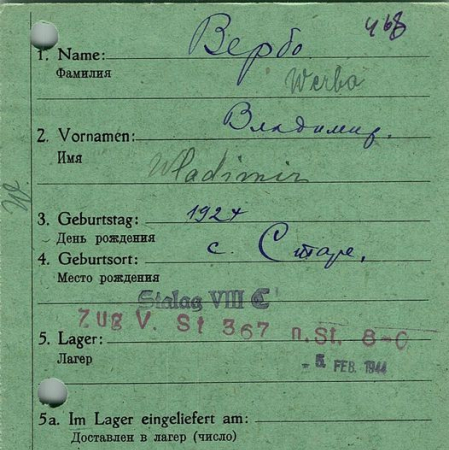 468
1. Name: Вербо
Фамилия
Werbo
2. Vornamen: Владимир.
Имя
Wladimir
W
3. Geburtstag: 1924
День рождения
4. Geburtsort: с. Старе,
Место рождения
Stalag VIII C
Zug V. St 367 n. St. 8-C
5. Lager:
Лагер
- 5. FEB. 1944
5a. Im Lager eingeliefert am:
Доставлен в лагер (число)